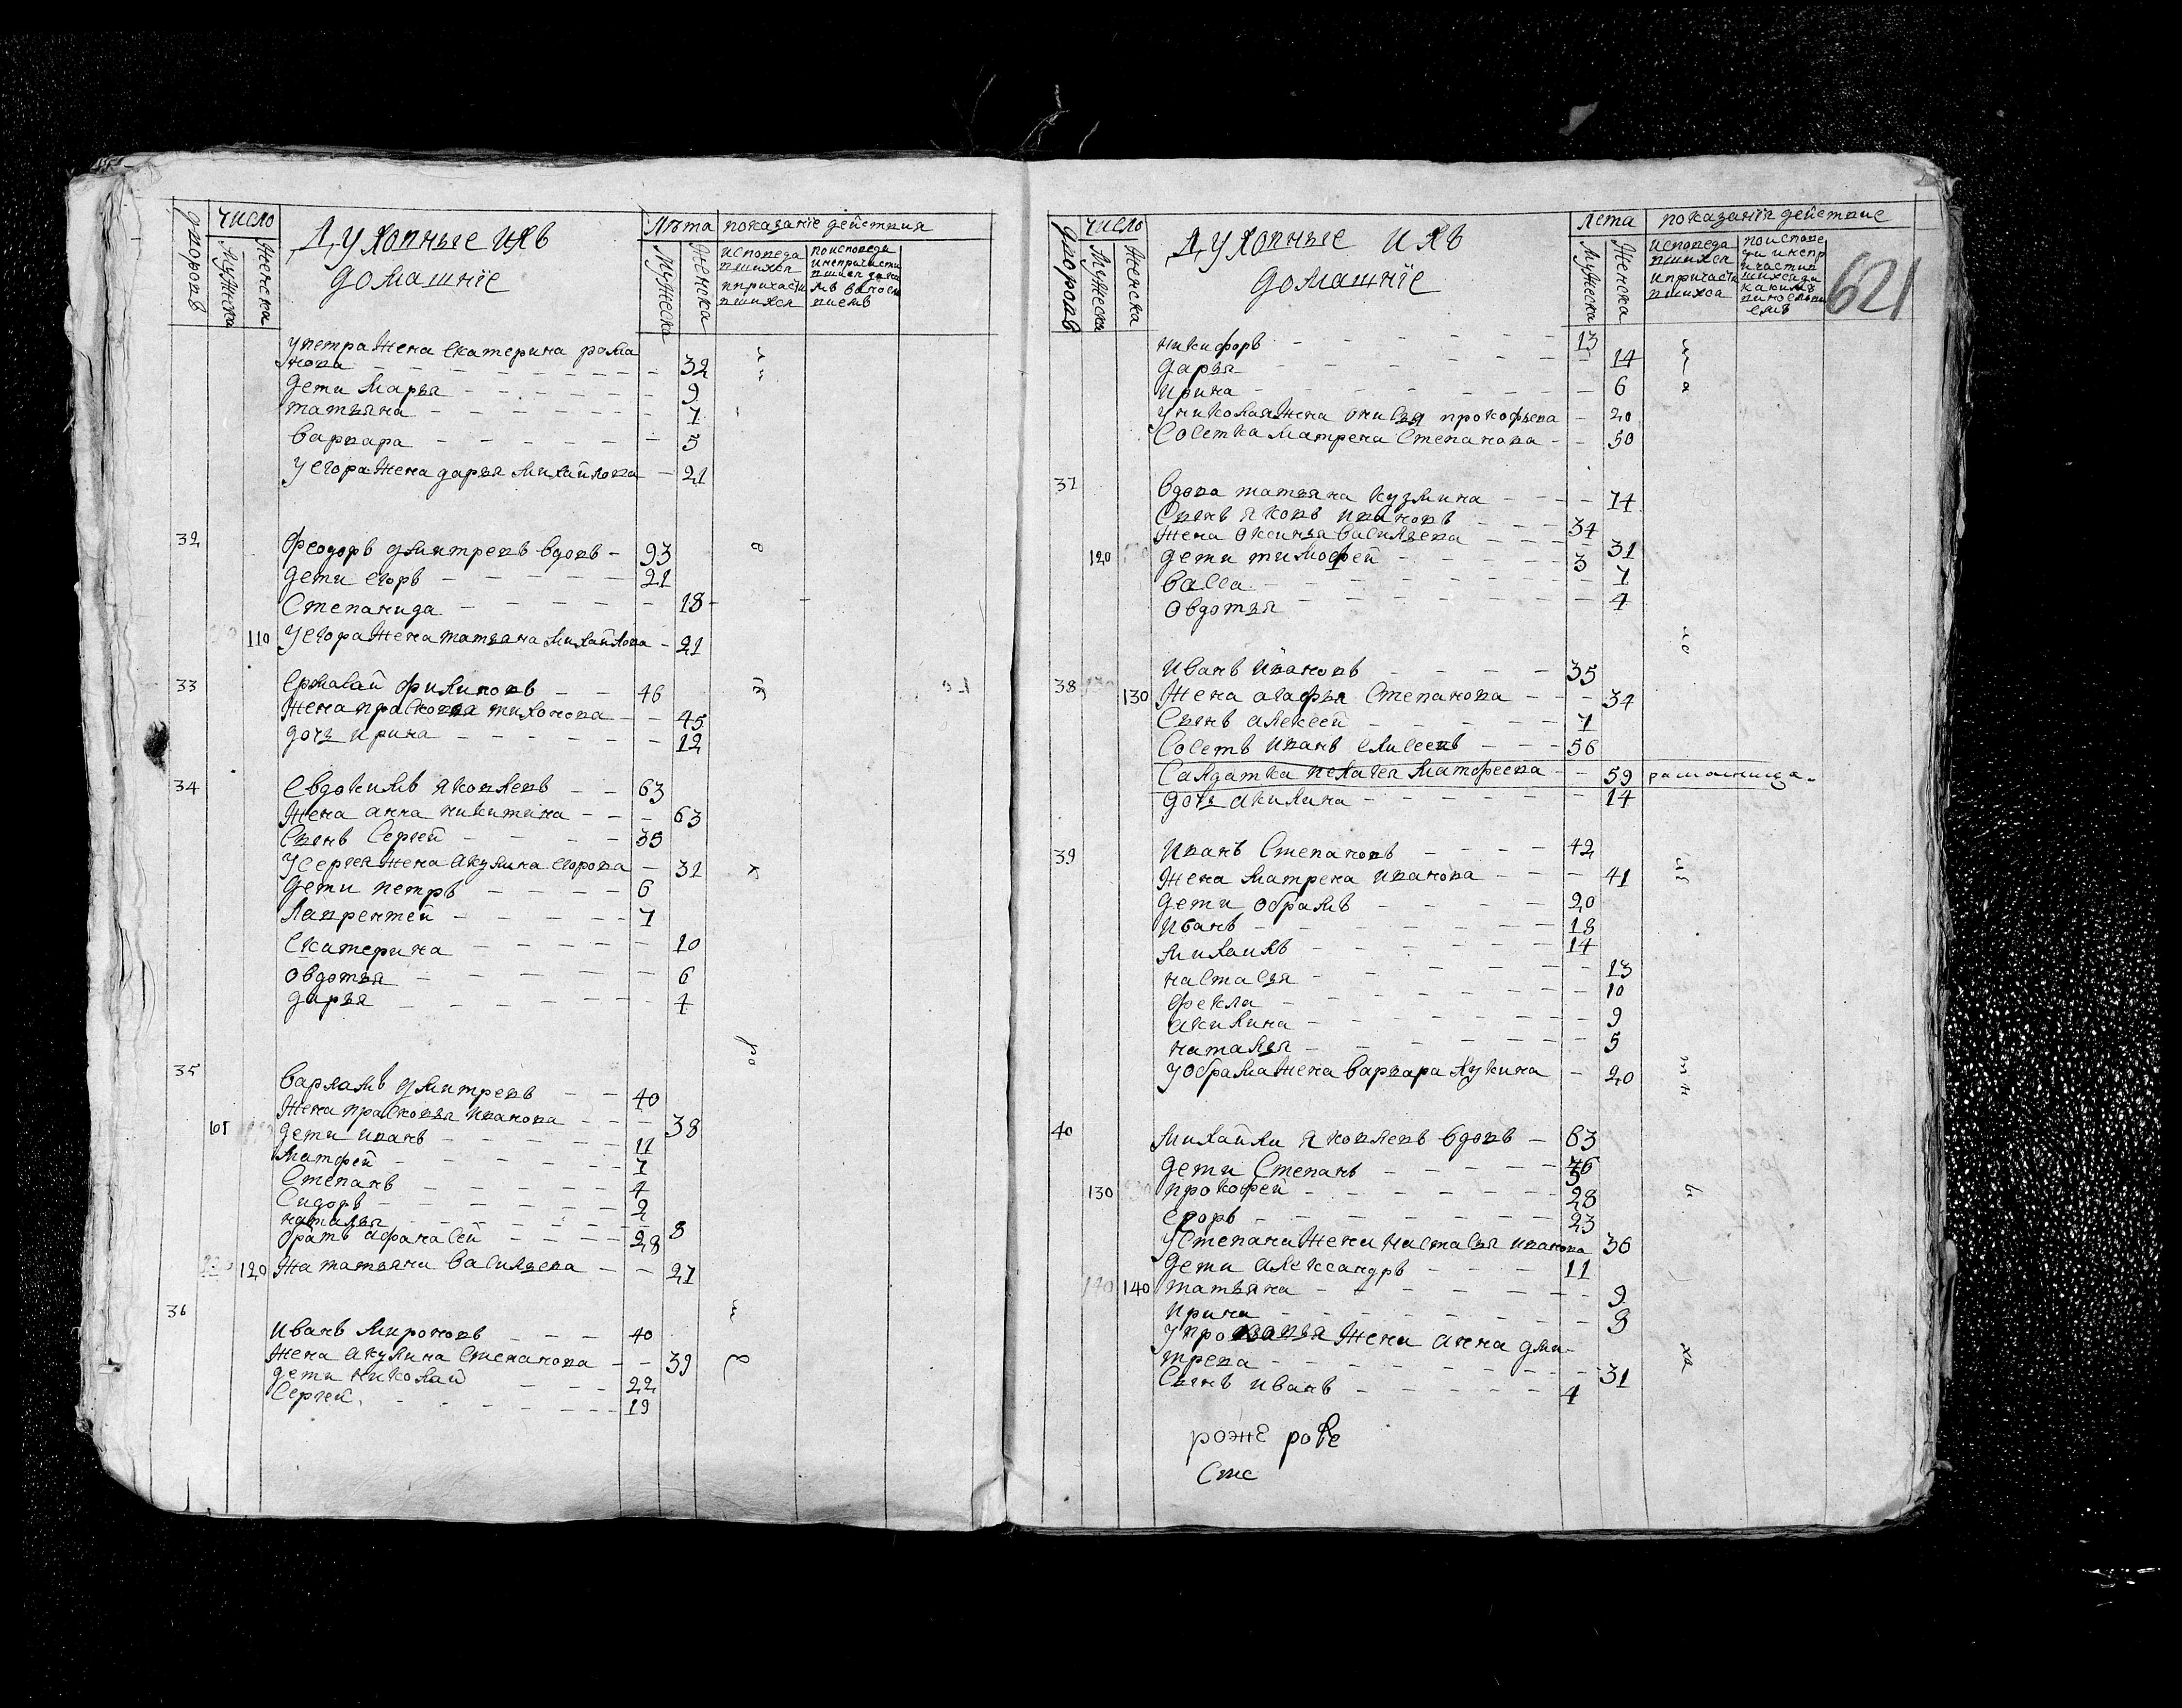 дворовъ
число
мужеска
женска
Духовные ихъ
домашнiе
лѣта
показанiе действия
мужеска
женска
исповеда
вшихся
и причасти
вшихся
у петра жена екатерина рома
нова 32
дети марья 9
татьяна 7
варвара 5
у егора жена дарья михайлова 21
32 феодоръ дмитревъ вдовъ 93
дети егоръ 21
степанида 18
110 у егора жена татьяна михайлова 21
33 ермолай филиповъ 46
жена прасковья тихонова 45
дочь ирина 12
34 евдокимъ яковлевъ 63
жена анна никитина 63
сынъ сергей 35
у сергея жена акулина егорова 31
дети петръ 6
лаврентей 1
екатерина 10
овдотья 6
дарья 4
35 варламъ дмитревъ 40
жена прасковья иванова 38
дети иванъ 11
матфей 7
степанъ 4
сидоръ 2
наталья 8
братъ афонасей 28
120 жа татьяна васильева 27
36 иванъ мироновъ 40
жена акулина степанова 39
дети николай 22
сергей 19
дворовъ
число
мужеска
женска
Духовные ихъ
домашнïе
лета
показанiя действие
мужеска
женска
исповеда
вшихся
и причасти
вшихся
621
никифоръ 13
дарья 14
ирина 6
у николая жена онисья прокофьева 20
советка матрена степанова 50
37 вдова татьяна кузмина 74
сынъ яковъ ивановъ 34
жена оксинья васильева 31
120 дети тимофей 3
васса 7
овдотья 4
иванъ ивановъ 35
38 130 жена агафья степанова 34
сынъ алексей 7
советъ иванъ елисеевъ 56
салдатка пелагея матфеева 59
дочь акилина 14
39 иванъ степановъ 42
жена матрена иванова 41
дети обрамъ 20
иванъ 18
михаилъ 14
настасья 13
фекла 10
акилина 9
наталья 5
у обрама жена варвара лукина 20
40 михайла яковлевъ вдовъ 63
дети степанъ
130 прокофей 28
егоръ 23
у степана жена настасья иванова 36
дети александръ 11
140 татьяна 9
ирина 8
жена анна дми
трева 31
сынъ иванъ 4